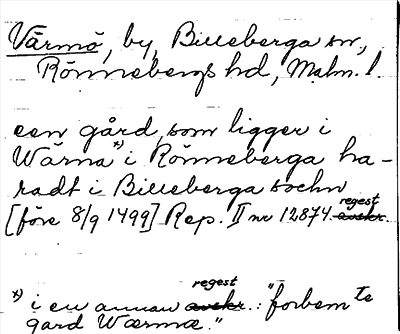 Värmö, by, Billeberga sn,
Rönnebergs hd, Malm. l.
een gård, som ligger i
Wärna *) i Rönneberga ha-
radt i Billeberga sochn
[före 8/9 1499] Rep. II nr 12874. regest
*) i en annan regest.: "forbem te
gard Wærmæ."